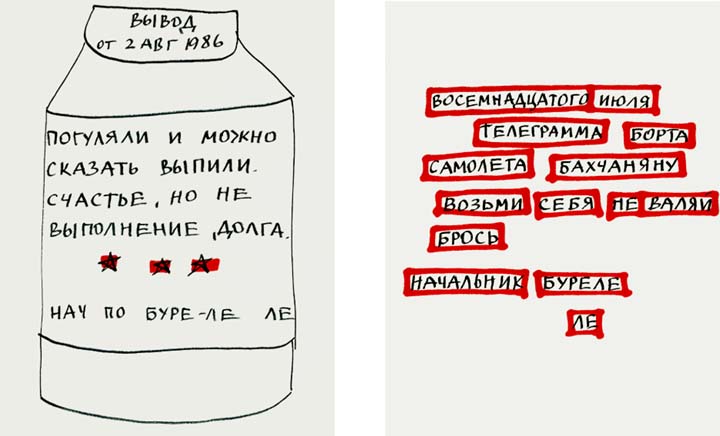 ВЫВОД
ОТ 2 АВГ 1986
ПОГУЛЯЛИ И МОЖНО
СКАЗАТЬ ВЫПИЛИ.
СЧАСТЬЕ, НО НЕ
ВЫПОЛНЕНИЕ ДОЛГА.
НАЧ ПО БУРЕ-ЛЕ ЛЕ
ВОСЕМНАДЦАТОГО ИЮЛЯ
ТЕЛЕГРАММА БОРТА
САМОЛЕТА БАХЧАНЯНУ
ВОЗЬМИ СЕБЯ НЕ ВАЛЯЙ
БРОСЬ
НАЧАЛЬНИК БУРЕЛЕ
ЛЕ